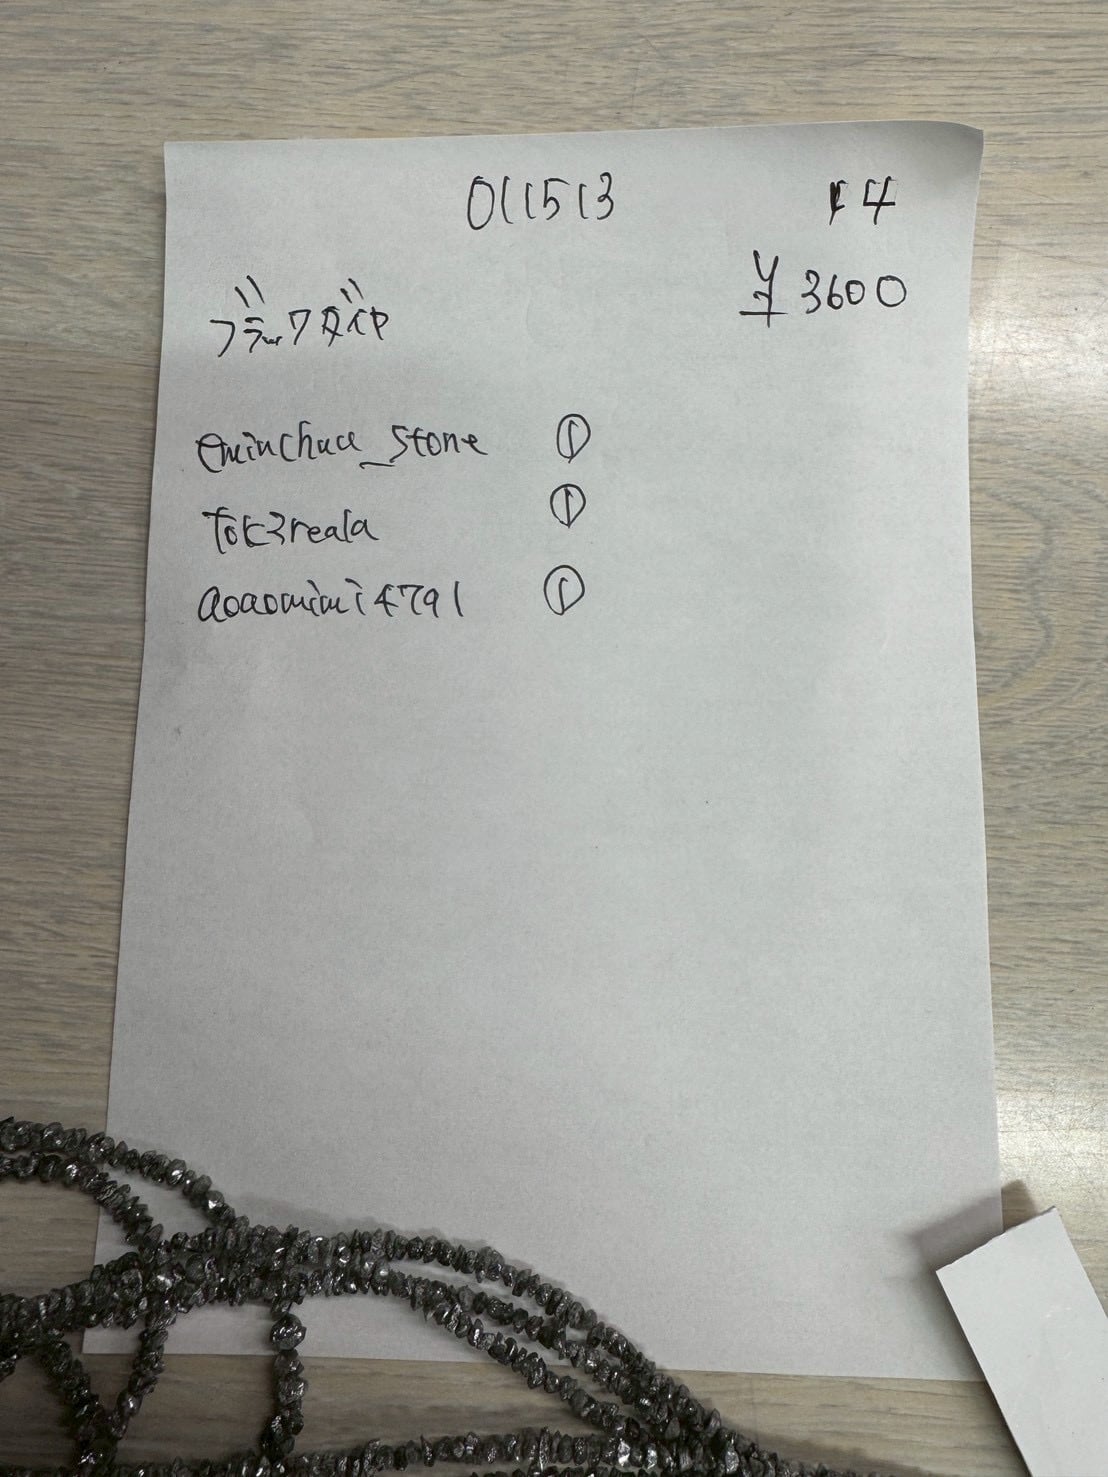 011513 14
¥3600
ブラックダイヤ
eminchuca_stone ①
tok3reala ①
aoaomimi4791 ①